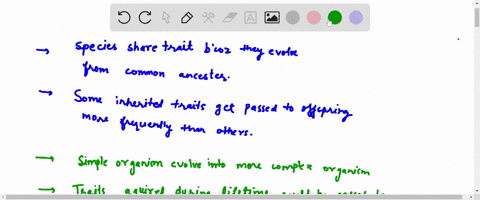 → Species share trait b'coz they evolve
from common ancester.
→ Some inherited traits get passed to offspring
more frequently than others.
→ Simple organism evolve into more complex organism
→ Traits aquired during lifetime